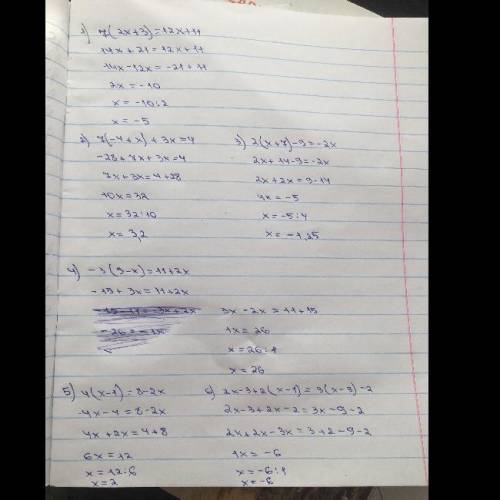 1) 7(2x+3)=12x+11
14x+21=12x+11
14x-12x=-21+11
2x=-10
x=-10:2
x=-5
2) 7(-4+x)+3x=4
-28+7x+3x=4
7x+3x=4+28
10x=32
x=32:10
x=3,2
3) 2(x+7)-9=-2x
2x+14-9=-2x
2x+2x=9-14
4x=-5
x=-5:4
x=-1,25
4) -3(5-x)=11+2x
-15+3x=11+2x
-15-11=-3x+2x
-26=-1x
3x-2x=11+15
1x=26
x=26:1
x=26
5) 4(x-1)=8-2x
4x-4=8-2x
4x+2x=4+8
6x=12
x=12:6
x=2
6) 2x-3+2(x-1)=3(x-3)-2
2x-3+2x-2=3x-9-2
2x+2x-3x=3+2-9-2
1x=-6
x=-6:1
x=-6